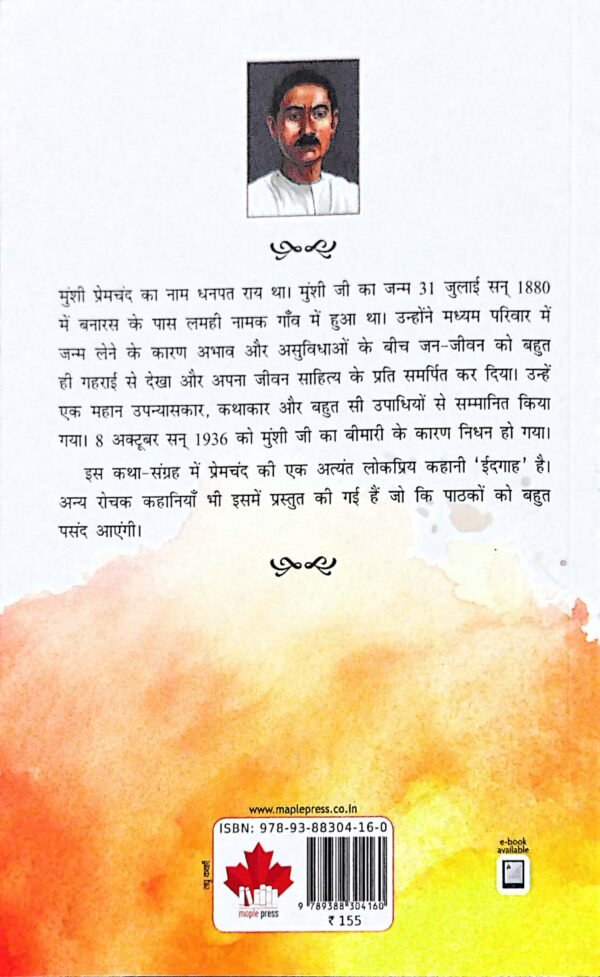 मुंशी प्रेमचंद का नाम धनपत राय था। मुंशी जी का जन्म 31 जुलाई सन् 1880
में बनारस के पास लमही नामक गाँव में हुआ था। उन्होंने मध्यम परिवार में
जन्म लेने के कारण अभाव और असुविधाओं के बीच जन-जीवन को बहुत
ही गहराई से देखा और अपना जीवन साहित्य के प्रति समर्पित कर दिया। उन्हें
एक महान उपन्यासकार, कथाकार और बहुत सी उपाधियों से सम्मानित किया
गया। 8 अक्टूबर सन् 1936 को मुंशी जी का बीमारी के कारण निधन हो गया।
इस कथा-संग्रह में प्रेमचंद की एक अत्यंत लोकप्रिय कहानी ‘ईदगाह’ है।
अन्य रोचक कहानियाँ भी इसमें प्रस्तुत की गई हैं जो कि पाठकों को बहुत
पसंद आएंगी।
www.maplepress.co.in
ISBN: 978-93-88304-16-0
लघु कथाएँ
maple press
9 789388 304160
₹ 155
e-book
available